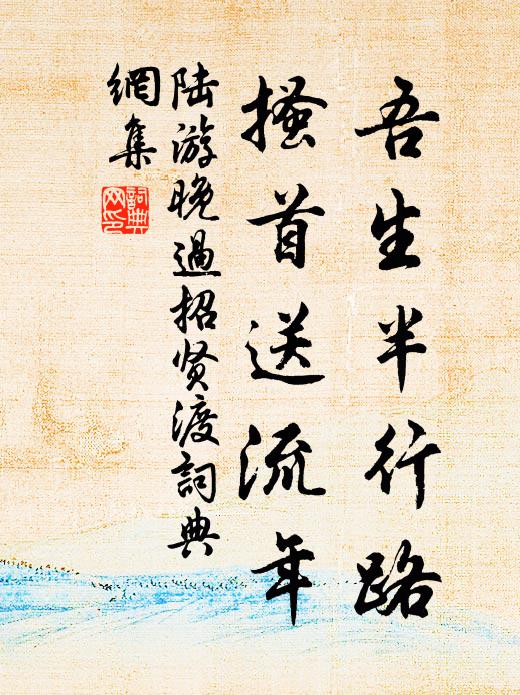 吾生半行路
搔首送流年
陆游晚過招贤渡詞典
網集
詞典
网印